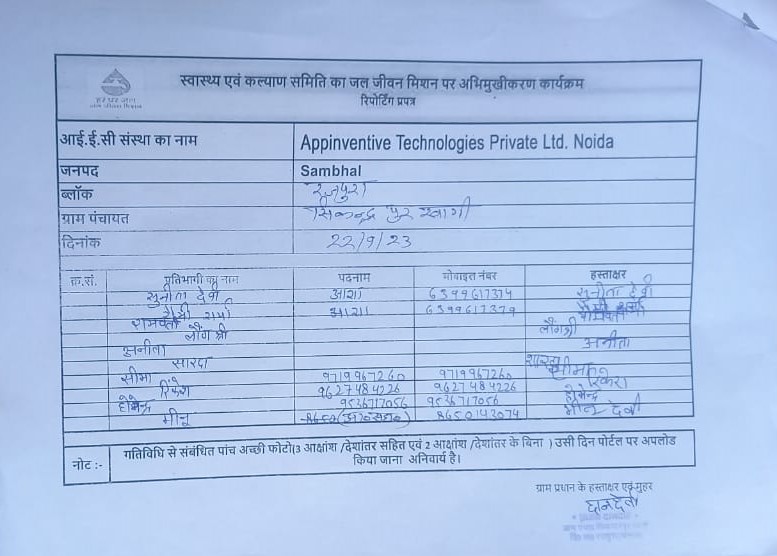 स्वास्थ्य एवं कल्याण समिति का जल जीवन मिशन पर अभिमुखीकरण कार्यक्रम
रिपोर्टिंग प्रपत्र
हर घर जल
जल जीवन मिशन
आई.ई.सी संस्था का नाम Appinventive Technologies Private Ltd. Noida
जनपद Sambhal
ब्लॉक रजपुरा
ग्राम पंचायत सिकन्द्र पुर
दिनांक 22/9/23
क्र.सं. प्रतिभागी का नाम पदनाम मोबाइल नंबर हस्ताक्षर
सुनीता देवी आशा 6399617374 सुनीता देवी
आशा 6399617379
रामवती
लौंग श्री लौंगश्री
अनीता अनीता
सारदा शारदा
सीमा 9719967260 9719967260 सीमा
रिंकेश 9627484226 9627484226
होमेन्द्र 9536717056 9536717056 होमेन्द्र
मीनू 8650143074 मीनू देवी
नोट :- गतिविधि से संबंधित पांच अच्छी फोटो(3 आक्षांश /देशांतर सहित एवं 2 आक्षांश /देशांतर के बिना ) उसी दिन पोर्टल पर अपलोड
किया जाना अनिवार्य है।
ग्राम प्रधान के हस्ताक्षर एवं मुहर